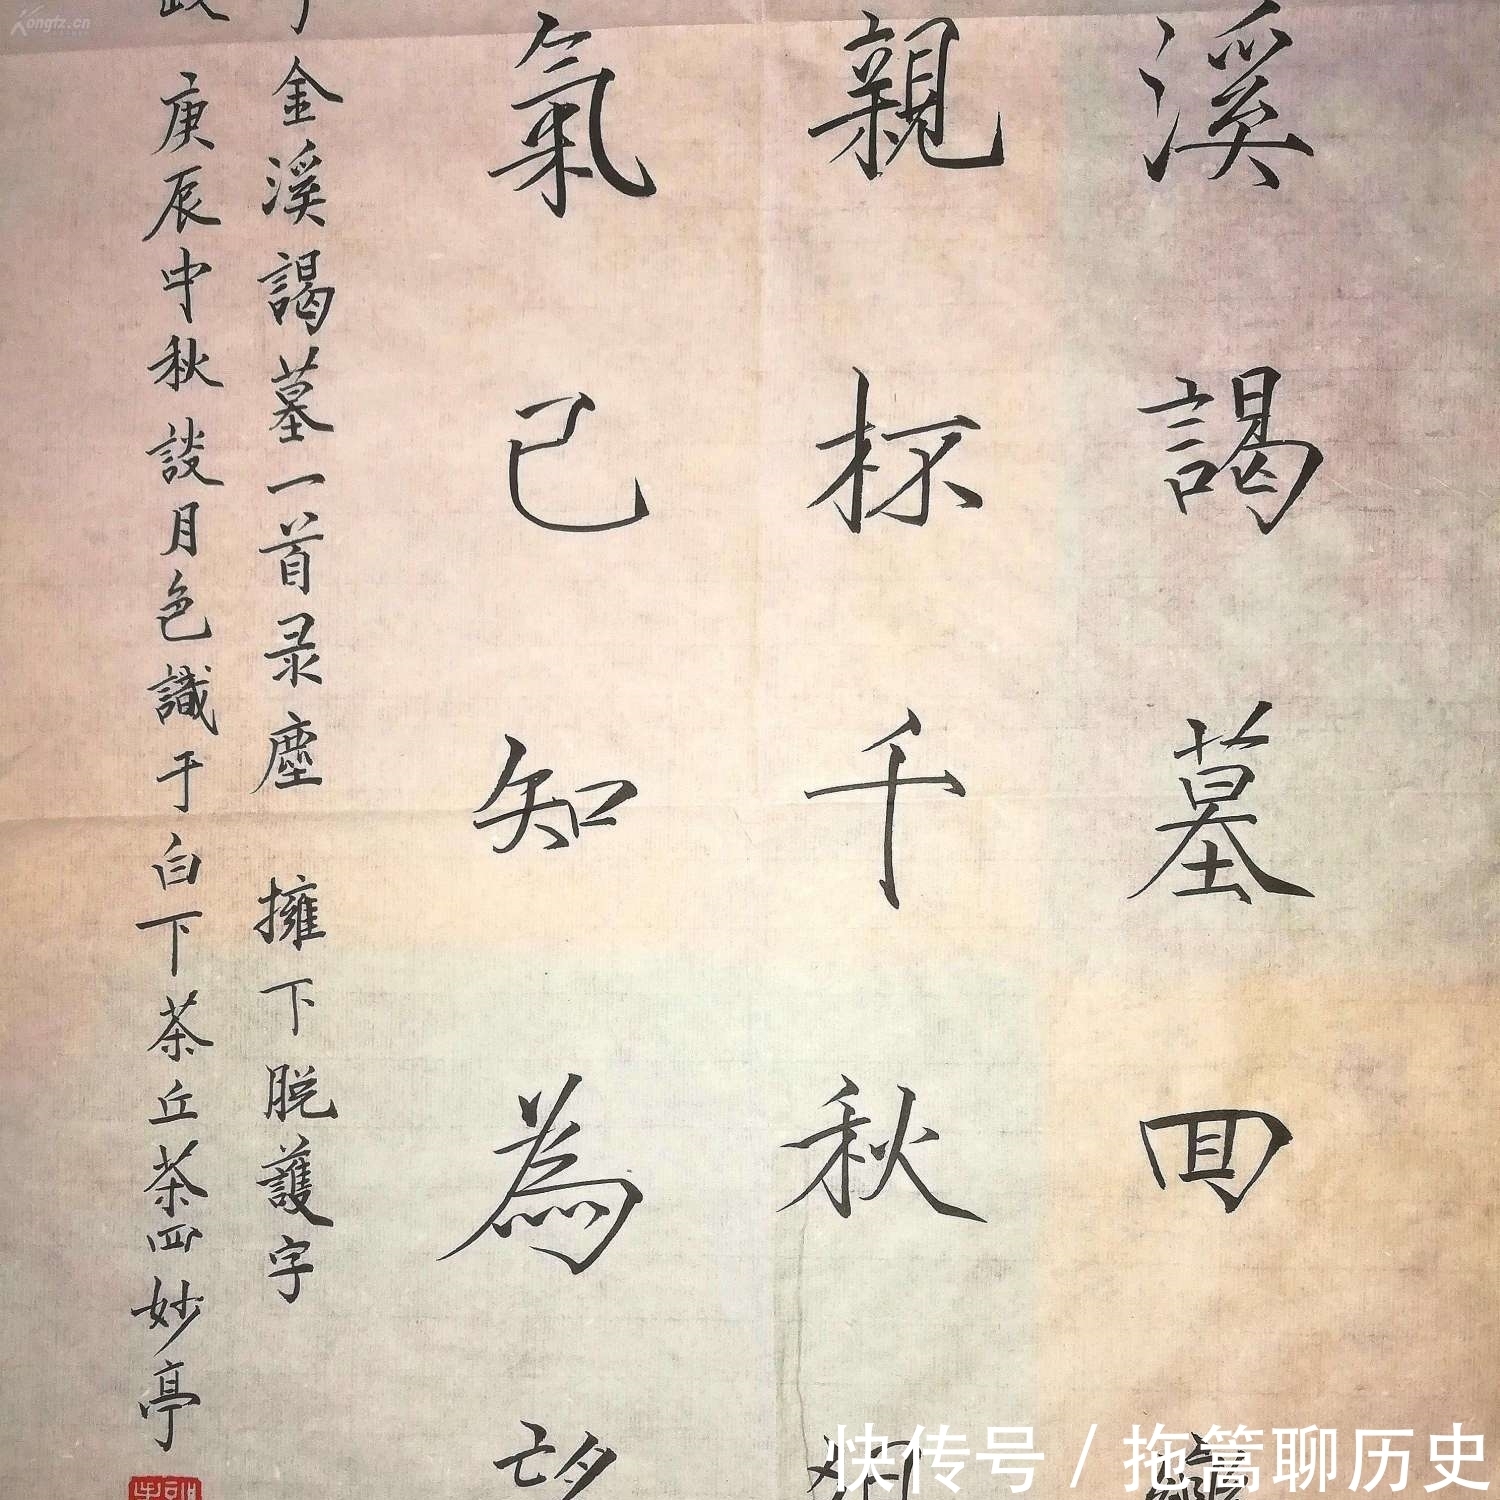 溪謁墓回
親杯千秋
氣已知為望
于金溪謁墓一首录塵 擁下脱護字
政 庚辰中秋談月色識于白下茶丘茶四妙亭
Kongfz.cn
快传号 / 拖篙聊历史